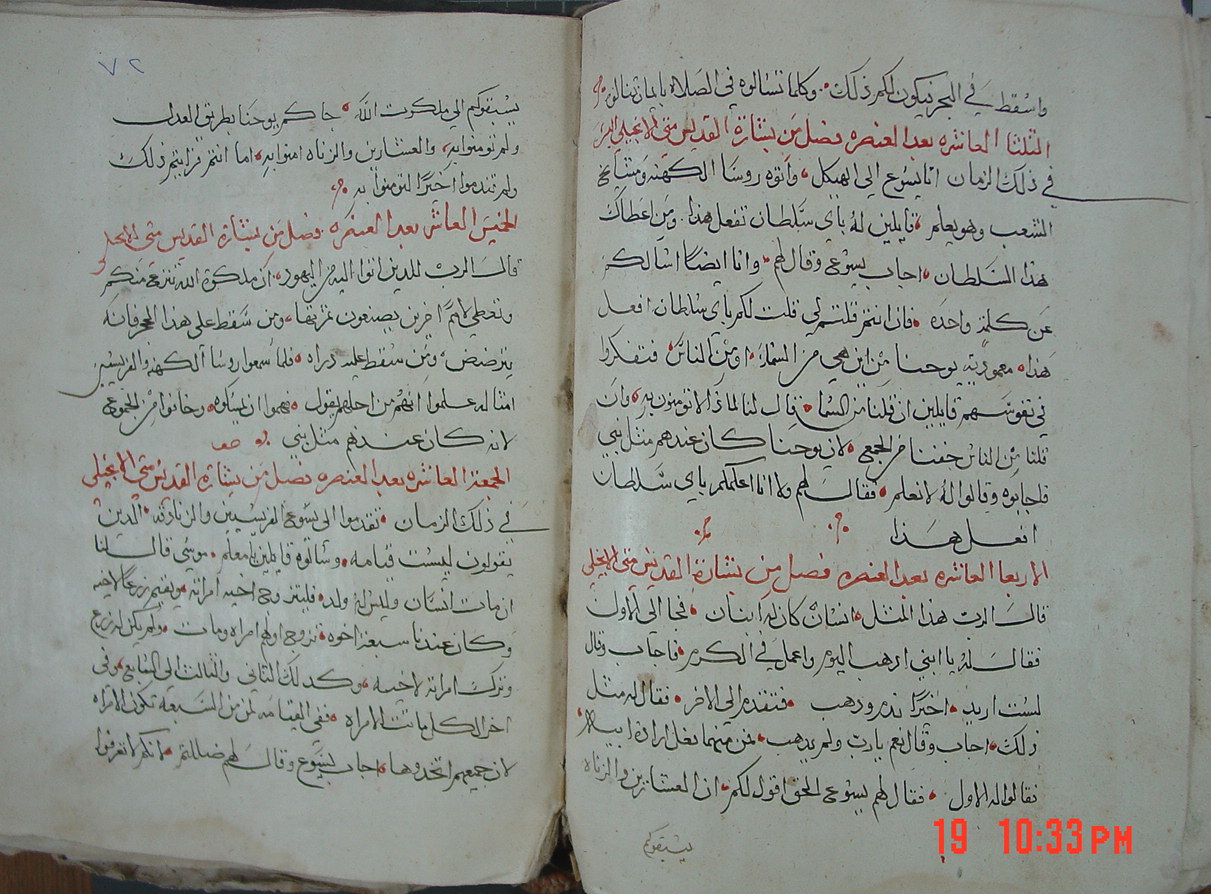 واسقط في البحر فيكون لكم ذلك. وكلما تسالوه في الصلاة بايمان تنالوه
الثلثا العاشره بعد العنصره فصل من بشارة القديس متى الانجيلي
في ذلك الزمان اتا يسوع الي الهيكل. واتوه روسا الكهنه ومشايخ
الشعب وهو يعلم. قايلين له باي سلطان تفعل هذا. ومن اعطاك
هذا السلطان. اجاب يسوع وقال لهم. وانا ايضا اسالكم
عن كلمة واحده. فان انتم قلتم لي قلت لكم باي سلطان افعل
هذا. معمودية يوحنا من اين هي من السماء. او من الناس. فتفكروا
في نفوسهم قايلين ان قلنا من السما. قال لنا لماذا لا تومنون به. وان
قلنا من الناس خفنا من الجمع. لان يوحنا كان عندهم مثل نبي
فاجابوه وقالوا له لا نعلم. فقال لهم ولا انا اعلمكم باي سلطان
افعل هذا
الاربعا العاشره بعد العنصره فصل من بشارة القديس متى الانجيلي
قال الرب هذا المثل. انسان كان له ابنان. فجا الي الاول
فقال له يا ابني اذهب اليوم واعمل في الكرم. فاجاب وقال
لست اريد. اخيرا ندم وذهب. فتقدم الي الاخر. فقال له مثل
ذلك. اجاب وقال نعم يارب ولم يذهب. فمن منهما فعل ارادة ابيه
فقالوا له الاول. فقال لهم يسوع الحق اقول لكم. ان العشارين والزناه
يسبقوكم
٧٢
يسبقوكم الي ملكوت الله. جاكم يوحنا بطريق العدل
ولم تومنوا به. والعشارين والزناه امنوا به. اما انتم فرايتم ذلك
ولم تندموا اخيرا لتومنوا به
الخميس العاشر بعد العنصره فصل من بشارة القديس متى الانجيلي
قال الرب للذين اتوا اليه من اليهود. ان ملكوة الله تنزع منكم
وتعطي لامم اخرين يصنعون ثمرتها. ومن سقط على هذا الحجر فانه
يترضض. ومن سقط عليه ذراه. فلما سمعوا روسا الكهنه والفريسيين
امثاله علموا انهم من اجلهم يقول. فهموا ان يمسكوه. وخافوا من الجموع
لانه كان عندهم مثل نبي
الجمعة العاشره بعد العنصره فصل من بشارة القديس متى الانجيلي
في ذلك الزمان. تقدموا الى يسوع الفريسيين والزنادقه. الذين
يقولون ليست قيامه. وسالوه قايلين يا معلم. موسي قال لنا
ان مات انسان وليس له ولد. فليتزوج اخيه امراته ويقيم زرعا لاخيه
وكان عندنا سبعة اخوه. تزوج اولهم امراه ومات. ولم يكن له زرع
وترك امراته لاخيه. وكذلك الثاني والثالث الي السابع. وفي
اخر الكل ماتت الامراه. ففي القيامه لمن من السبعه تكون الامراه
لان جميعهم اتخذوها. اجاب يسوع وقال لهم ضللتم. لانكم لا تعرفوا
19 10:33 PM